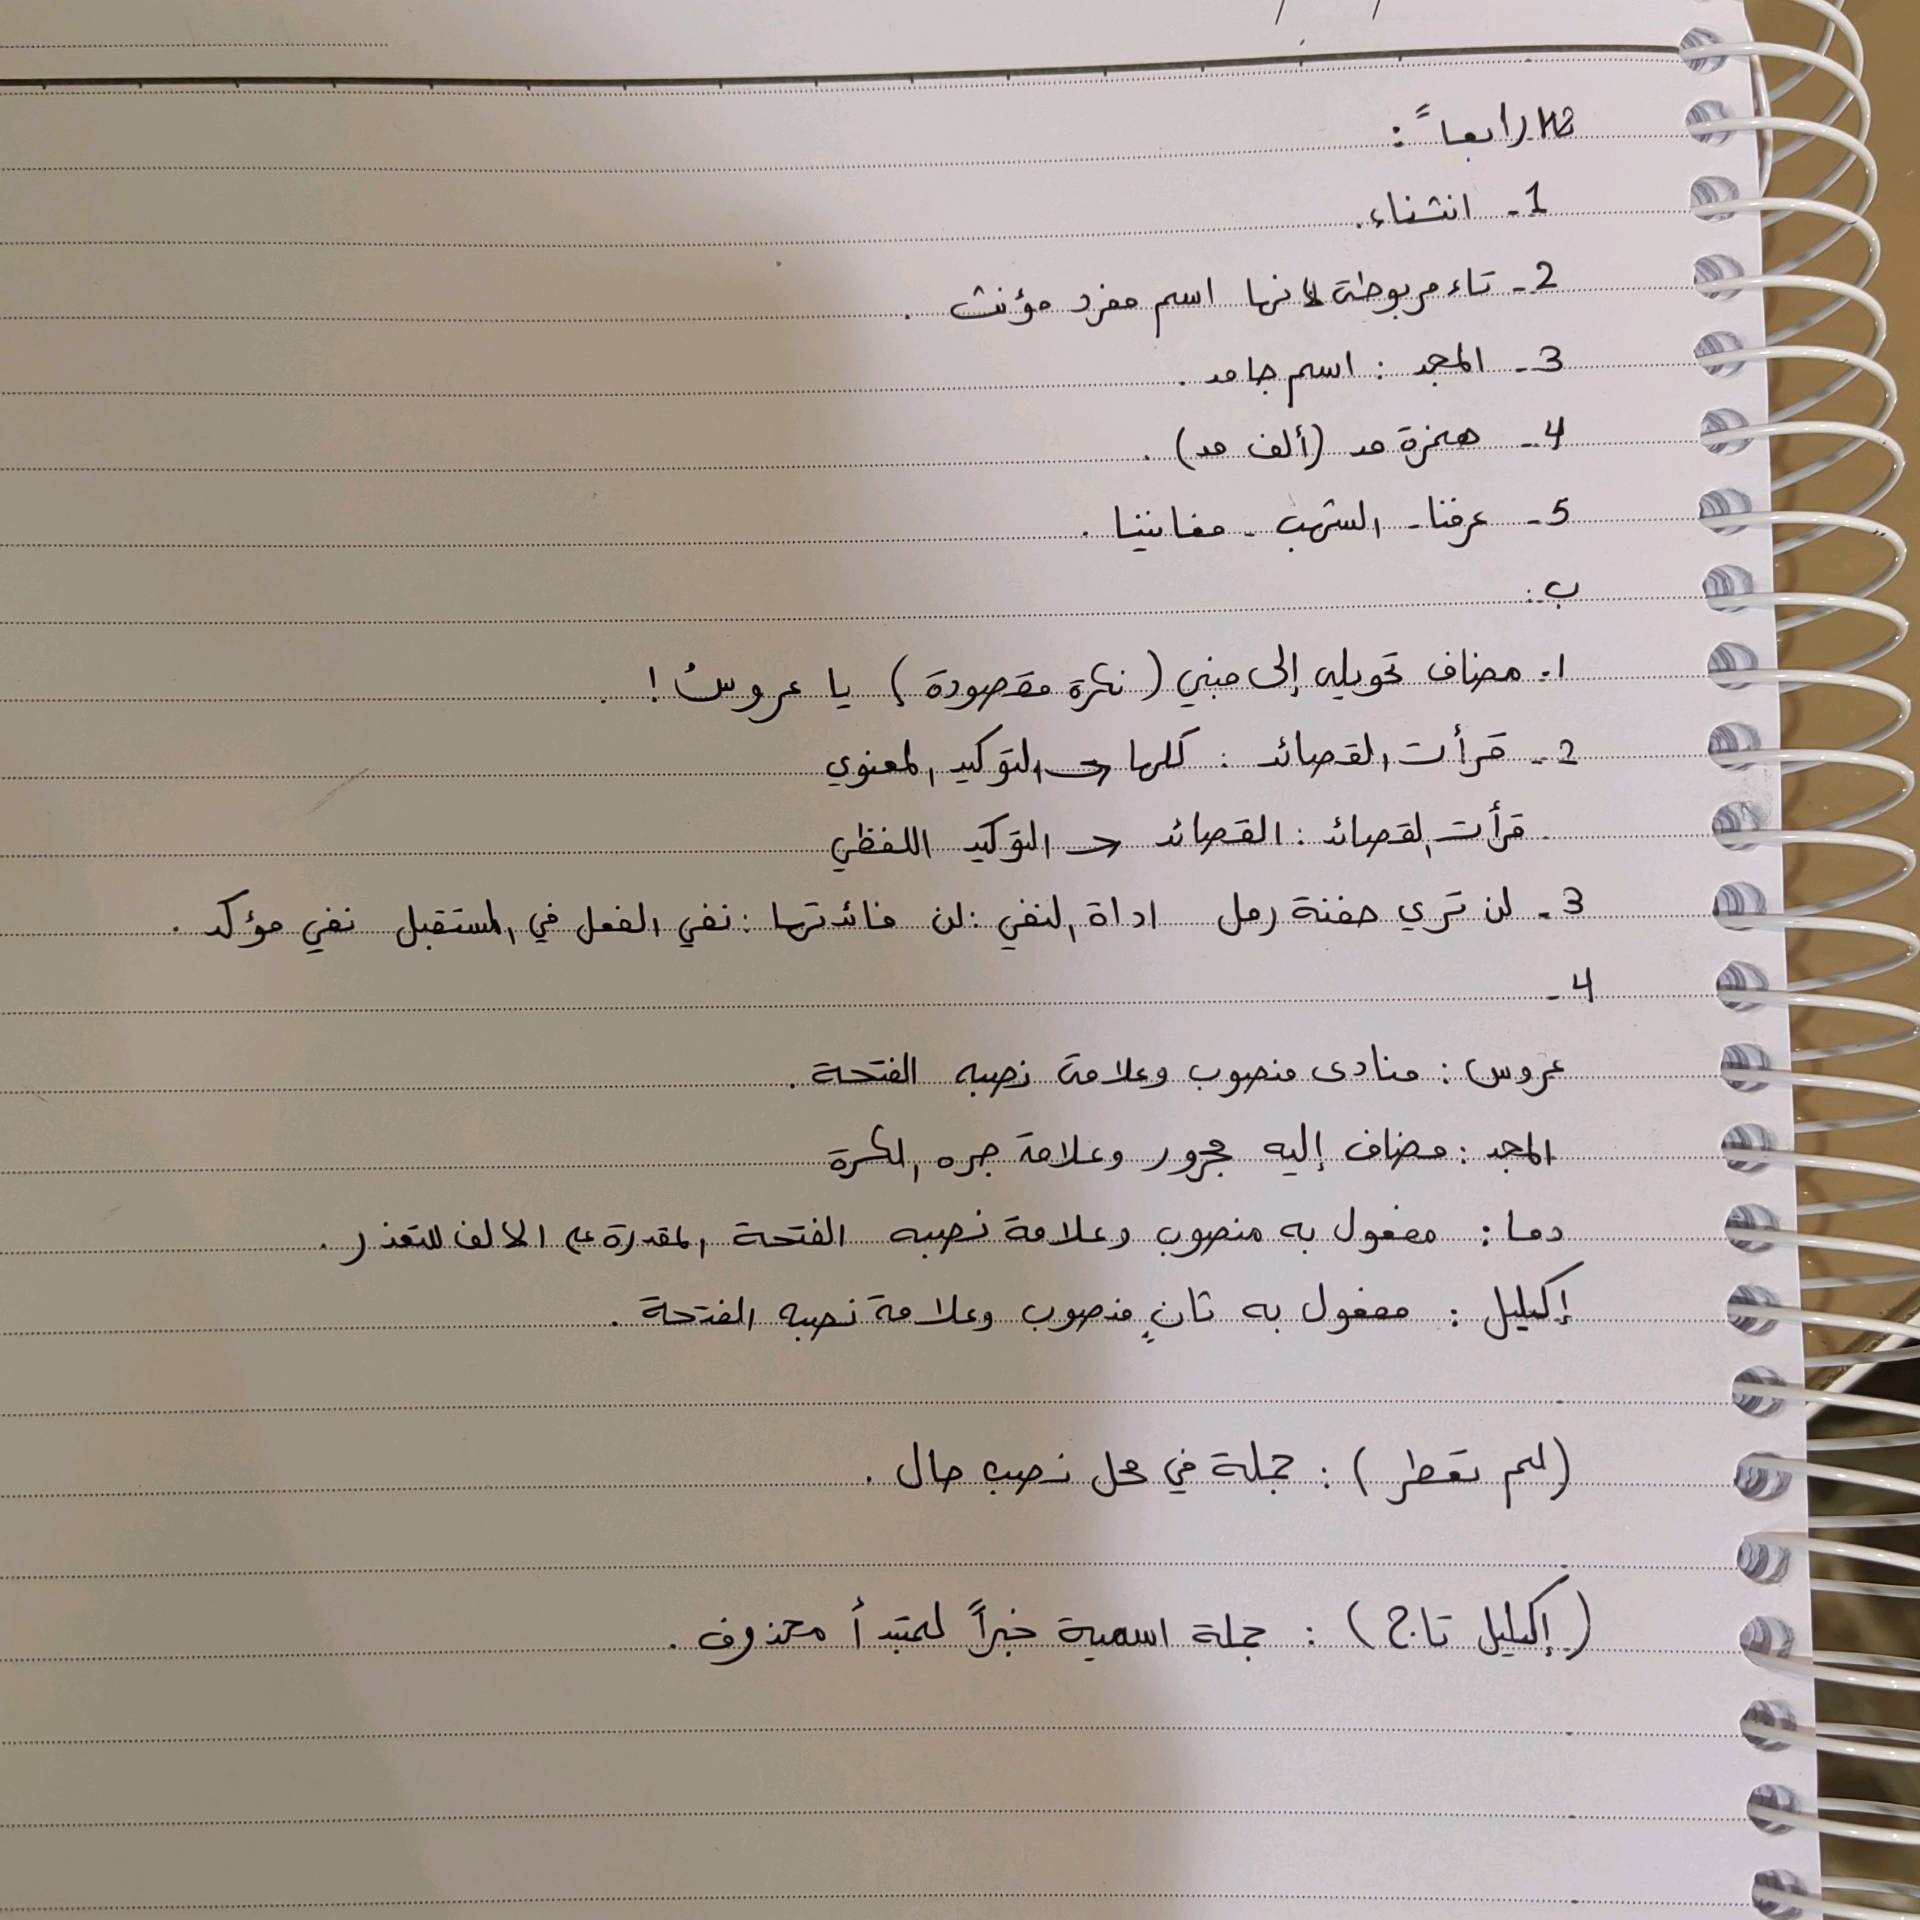 رابعاً:
1- انشاء.
2- تاء مربوطة لانها اسم مفرد مؤنث.
3- المجد: اسم جامد.
4- همزة مد (ألف مد).
5- عرفنا - الشهب - مغانينا.
ب:
1. مضاف تحويله إلى مبني (نكرة مقصودة) يا عروسُ!.
2- قرأت القصائد: كلها → التوكيد المعنوي
قرأت القصائد: القصائد → التوكيد اللفظي
3- لن تري حفنة رمل اداة النفي: لن فائدتها: نفي الفعل في المستقبل نفي مؤكد.
4-
عروس: منادى منصوب وعلامة نصبه الفتحة.
المجد: مضاف إليه مجرور وعلامة جره الكسرة
دما: مفعول به منصوب وعلامة نصبه الفتحة المقدرة على الالف للتعذر.
إكليل: مفعول به ثانٍ منصوب وعلامة نصبه الفتحة.
(لم تعطر): جملة في محل نصب حال.
(إكليل تاج): جملة اسمية خبراً لمبتدأ محذوف.